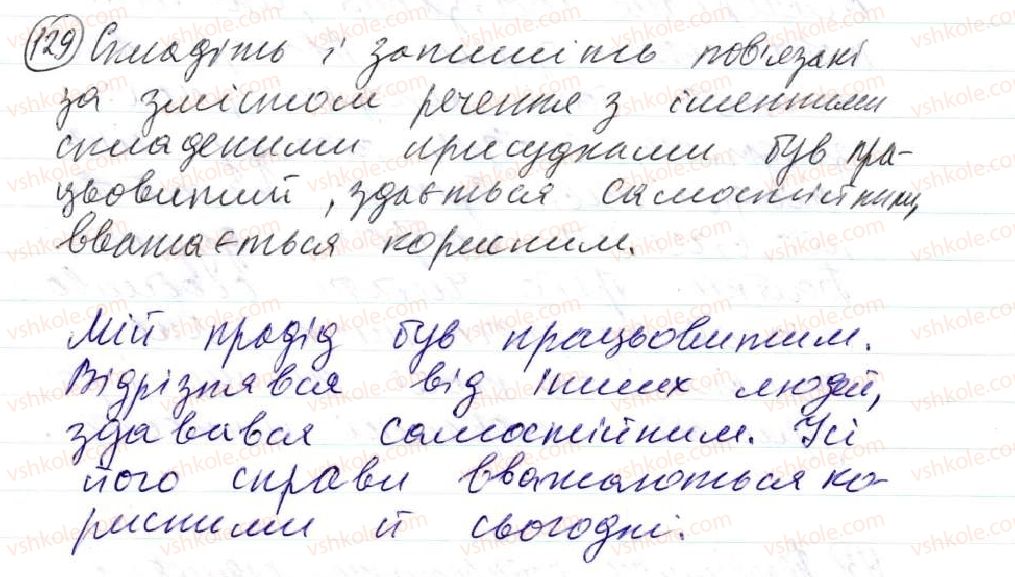 129 Складіть і запишіть пов'язані
за змістом речення з іменними
складеними присудками був пра-
цьовитий, здається самостійним,
вважається корисним.
Мій прадід був працьовитим.
Відрізнявся від інших людей,
здавався самостійним. Усі
його справи вважаються ко-
рисними й сьогодні.